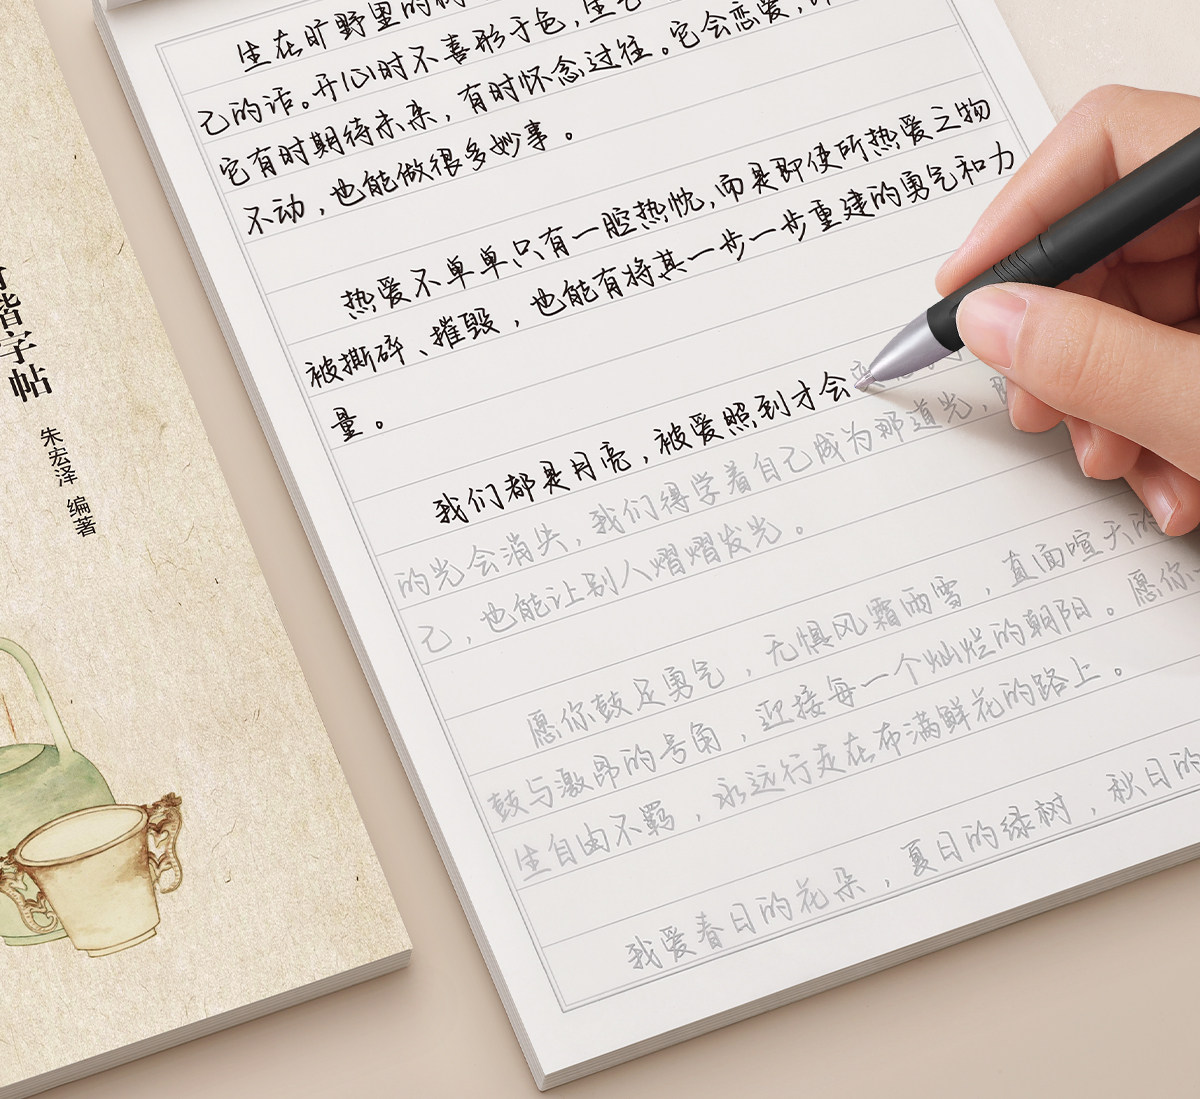 生在旷野里的树
己的话。开心时不喜形于色，生
它有时期待未来，有时怀念过往。它会恋爱，
不动，也能做很多妙事。
热爱不单单只有一腔热忱，而是即使所热爱之物
被撕碎、摧毁，也能有将其一步一步重建的勇气和力
量。
我们都是月亮，被爱照到才会
的光会消失，我们得学着自己成为那道光，
己，也能让别人熠熠发光。
愿你鼓足勇气，无惧风霜雨雪，直面喧天的
鼓与激昂的号角，迎接每一个灿烂的朝阳。愿你
生自由不羁，永远行走在布满鲜花的路上。
我爱春日的花朵，夏日的绿树，秋日的
楷字帖
朱宏泽 编著